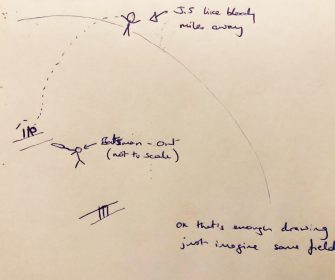 J.S like bloody
miles away
Batsman - out
(not to scale)
ok that's enough drawing
just imagine some field